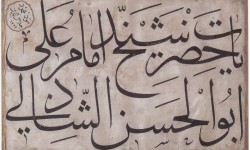 يا حضرت شيخ امام علي
ابو الحسن الشاذلي